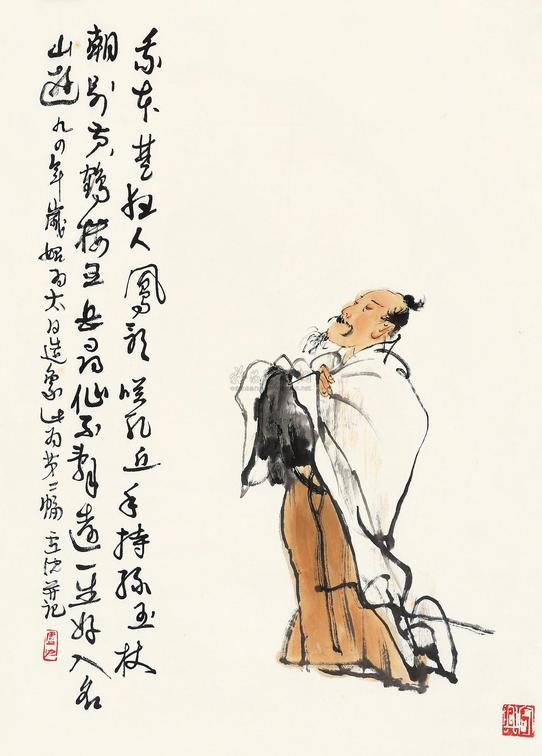 我本楚狂人鳳歌咲孔丘手持綠玉杖
朝别黄鹤楼五岳寻仙不辭遠一生好入名
山遊九四年歲始为太白造象此为第二幅卢沉并记